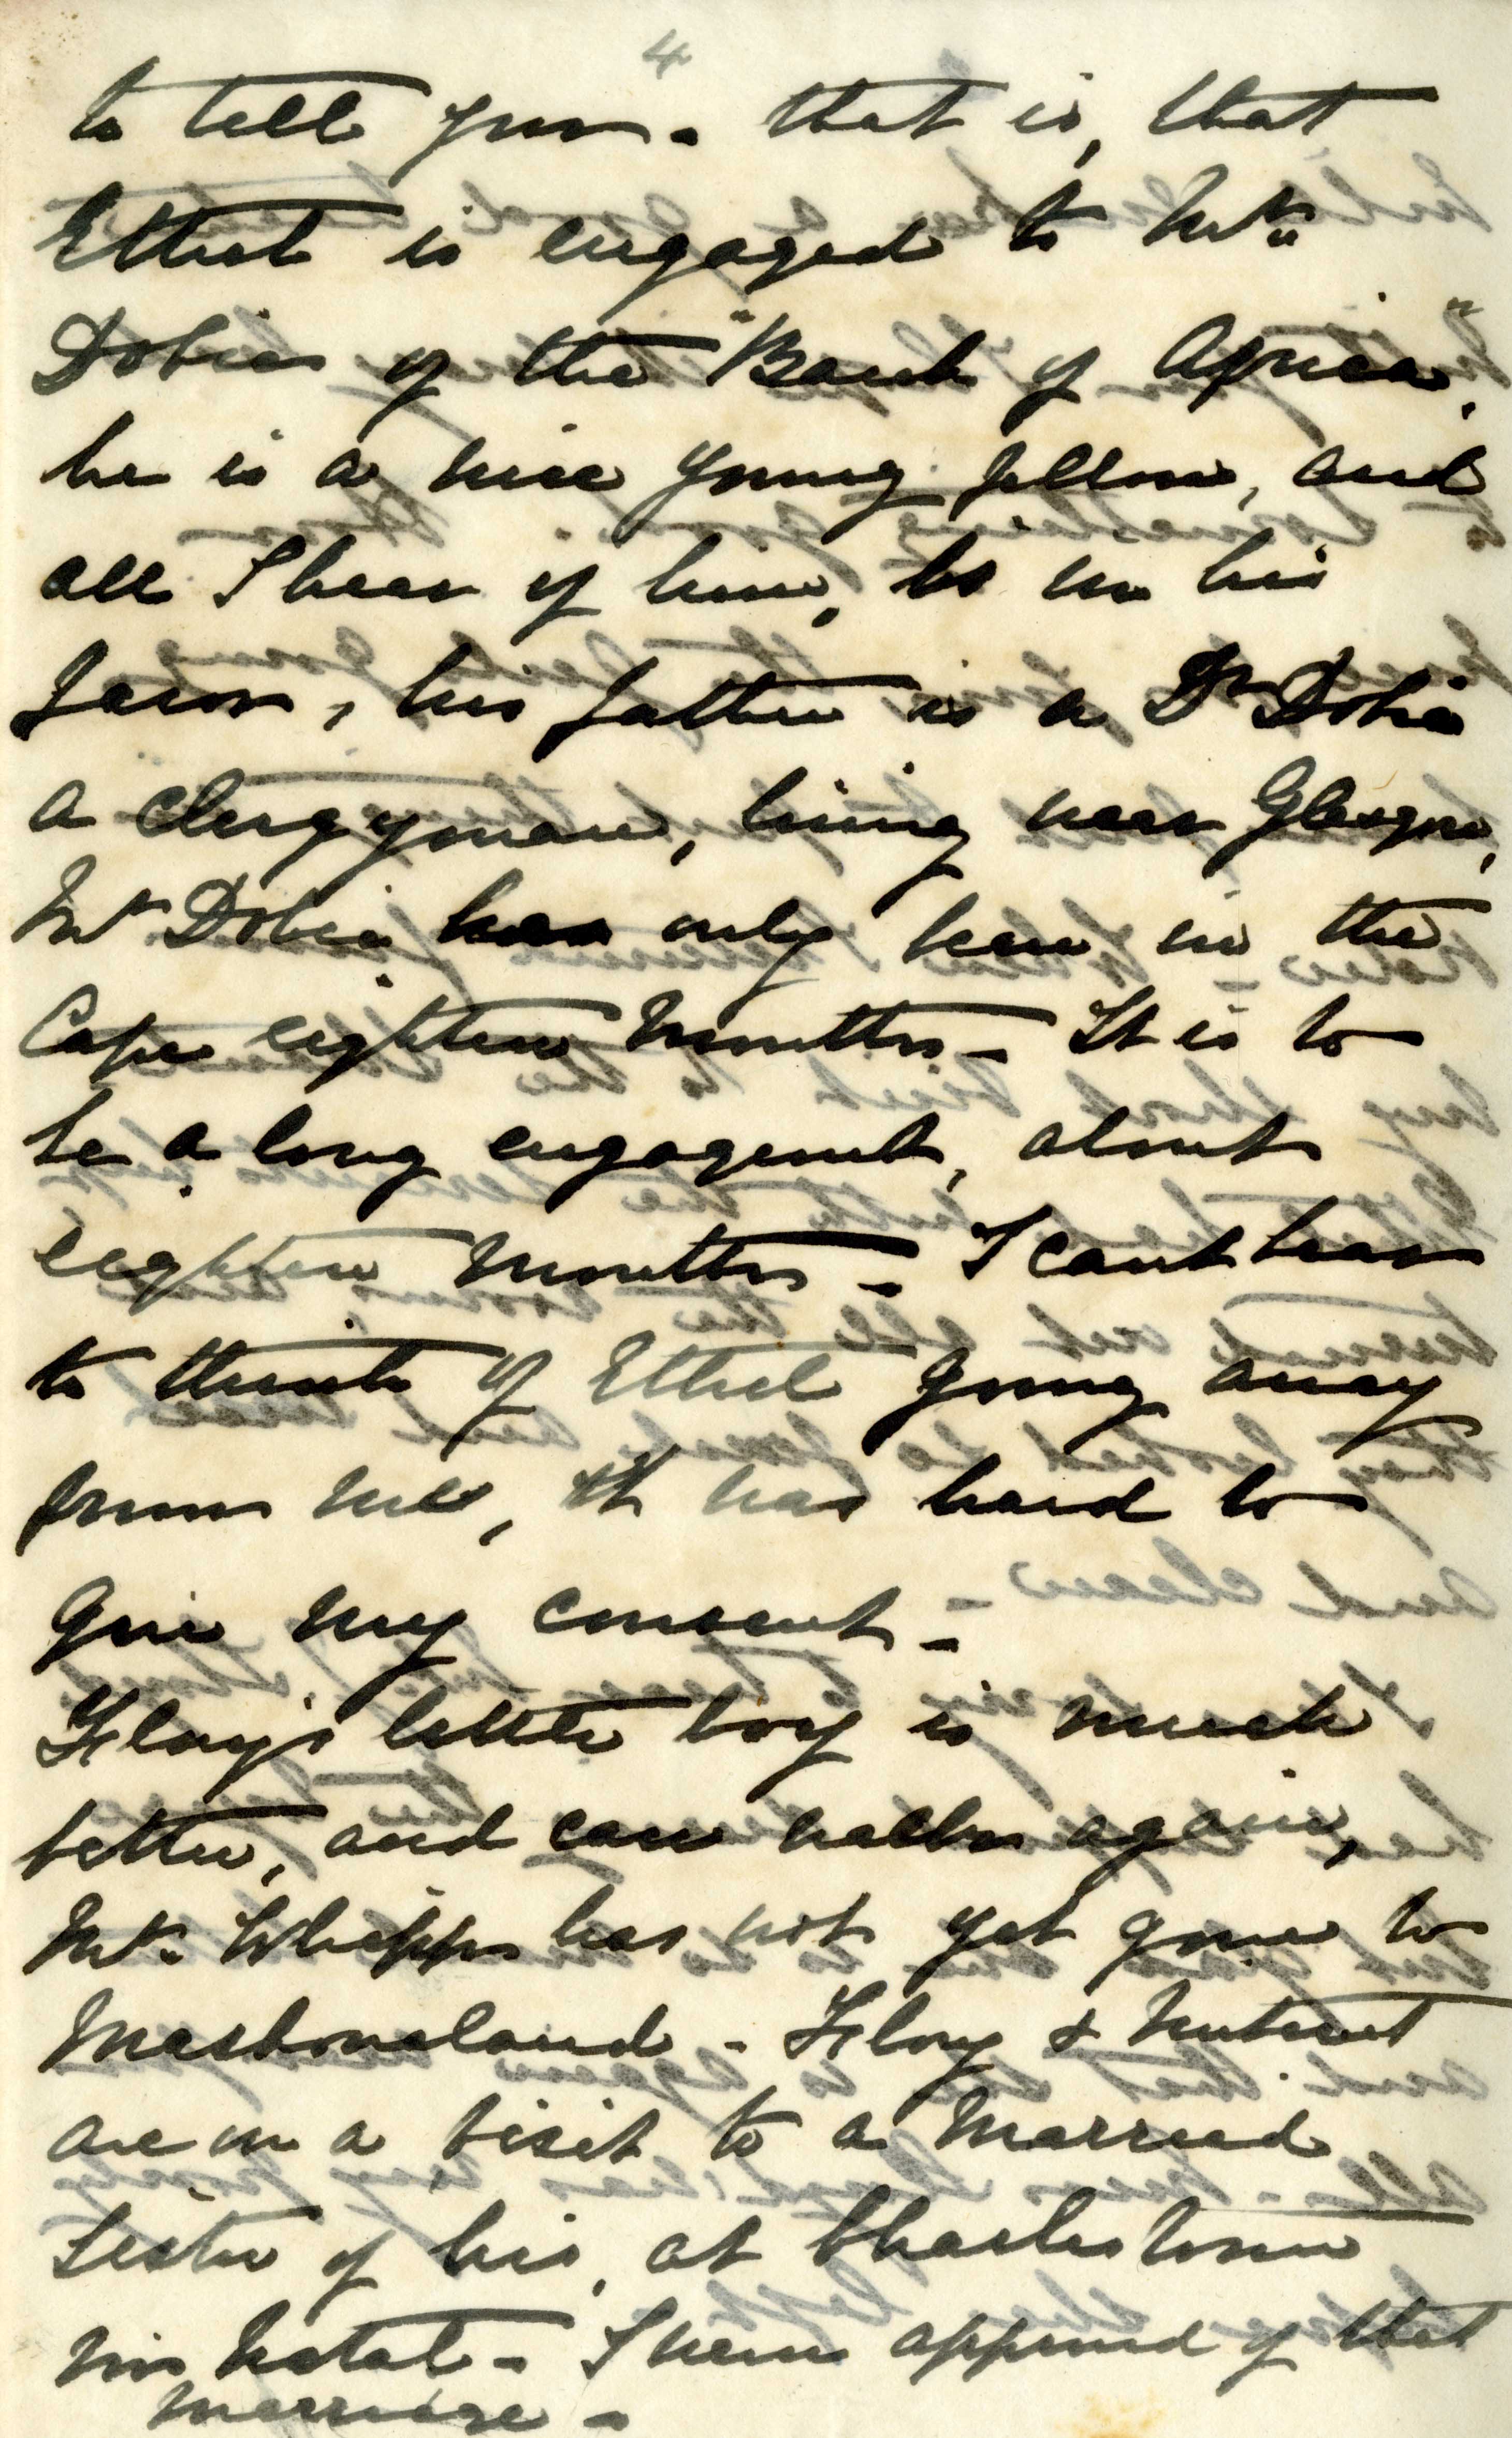 4
to tell you. that is, that
Ethel is engaged to Mr.
Dobie of the "Bank of Africa",
he is a nice young fellow, and
all I hear of him, is in his
favor, his father is a Dr Dobie
a clergyman, living near Glasgow,
Mr Dobie has only been in the
Cape eighteen months - It is to
be a long engagement, about
eighteen months - I cant bear
to think of Ethel going away
from me, it was hard to
give my consent -
Floy's little boy is much
better, and can walk again,
Mr. Whipp has not yet gone to
Mashonaland - Floy &
are on a visit to a married
sister of his, at Charlestown
in Natal - I never approved of that
marriage -